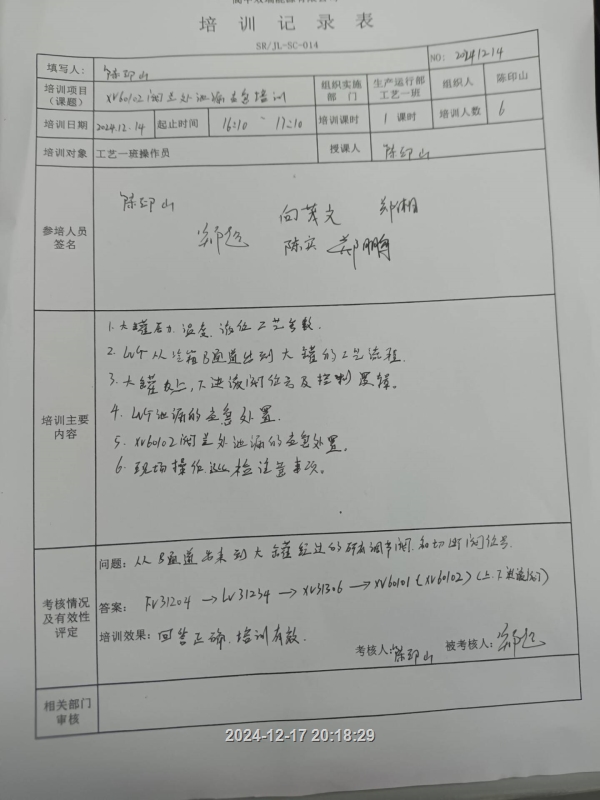 培训记录表
SR/JL-SC-014
NO: 2024.12.14
填写人: 陈印山
培训项目(课题) XV60102阀兰处泄漏应急培训 组织实施部门 生产运行部工艺一班 组织人 陈印山
培训日期 2024.12.14 起止时间 16:10 ~ 17:10 培训课时 1 课时 培训人数 6
培训对象 工艺一班操作员 授课人 陈印山
参培人员签名
陈印山 向茂文 郑湘
郑超 陈实 郑鹏
培训主要内容
1. 大罐压力、温度、液位工艺参数.
2. LNG从冷箱B通道出到大罐的工艺流程.
3. 大罐上、下进液阀位号及控制逻辑。
4. LNG泄漏的应急处置.
5. XV60102阀兰处泄漏的应急处置。
6. 现场操作巡检注意事项。
考核情况及有效性评定
问题: 从B通道出来到大罐经过的所有调节阀和切断阀位号.
答案: FV31204 → LV31234 → XV31306 → XV60101 (XV60102) (上、下进液阀)
培训效果: 回答正确,培训有效. 考核人: 陈印山 被考核人: 郑超
相关部门审核
2024-12-17 20:18:29